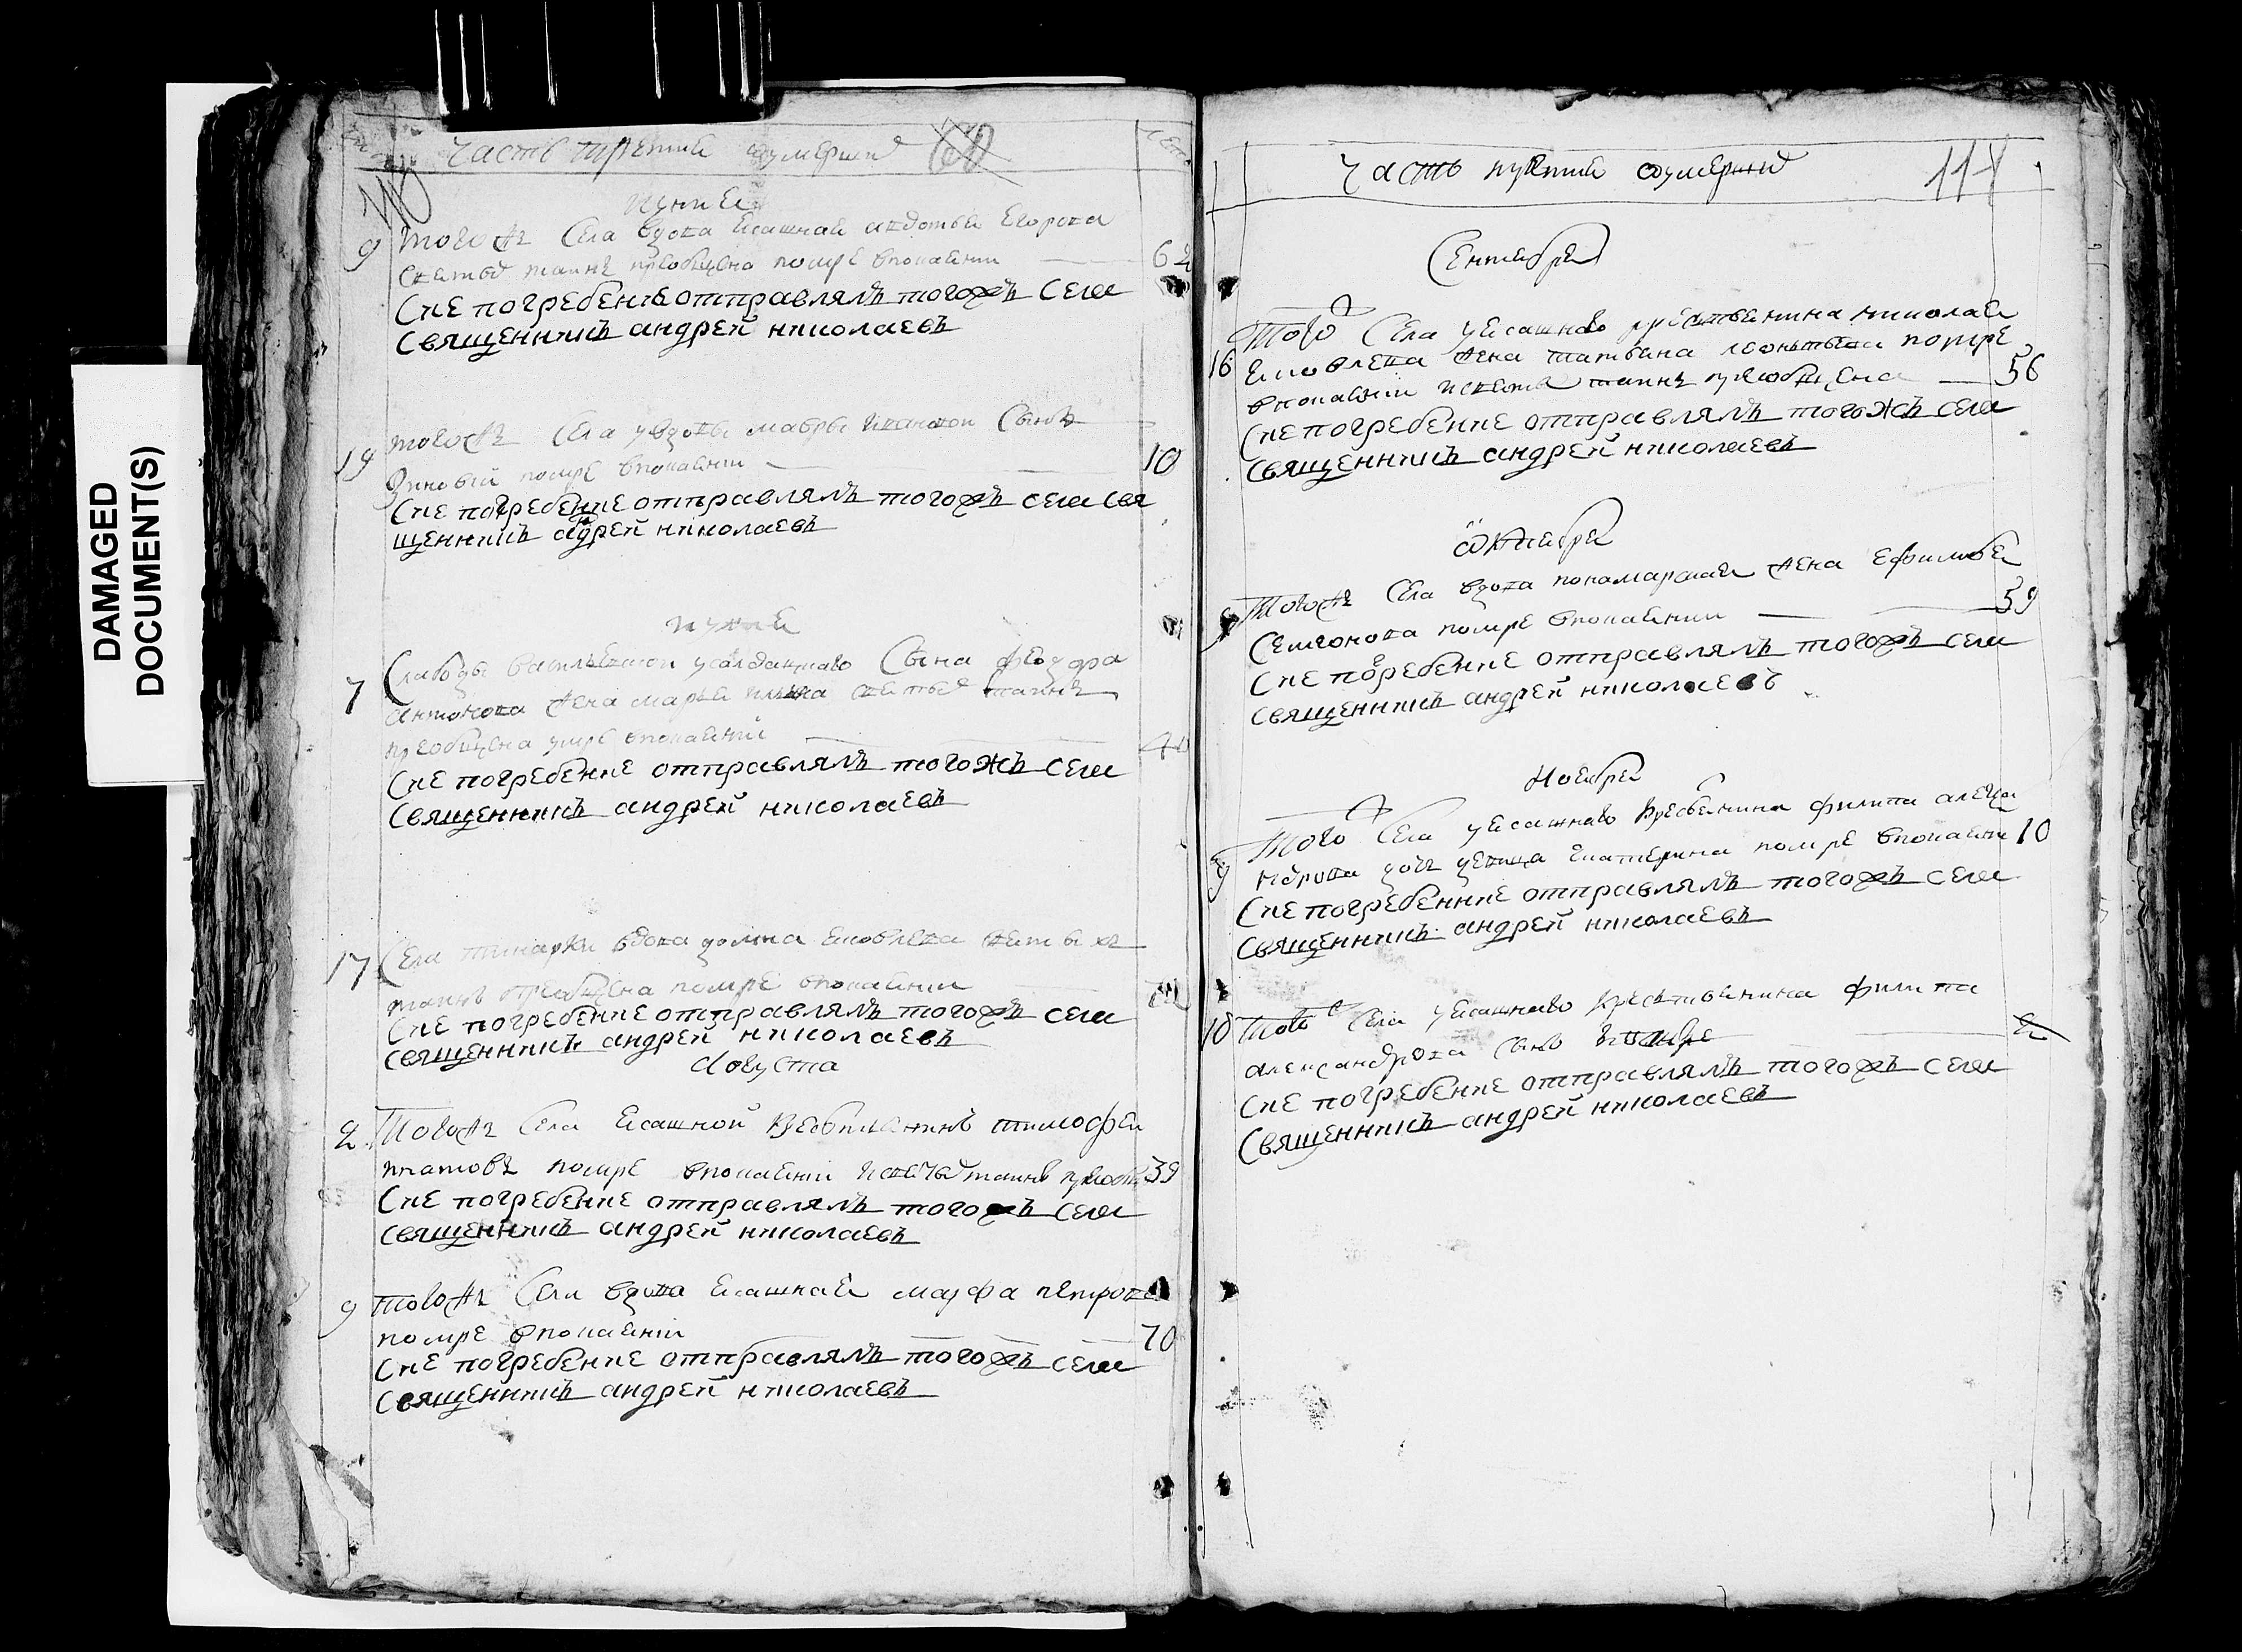 DAMAGED
DOCUMENT(S)
часть третия оумершихъ
июниа
9 того жъ села вдова ясашная авдотья егорова
святыхъ таинъ приобщена помре впокаянии 62
Сие погребение отправлялъ тогожъ села
Священникъ андрей николаевъ
19 того жъ села у вдовы мавры ивановой сынъ
Зиновий помре впокаянии 10
Сие погребение отправлялъ тогожъ села свя
щенникъ андрей николаевъ
июлиа
7 Слабоды у салдацкаво сына феодора
антонова жена марья святыхъ таинъ
приобщена умре впокаянии 40
Сие погребение отправлялъ тогожъ села
Священникъ андрей николаевъ
17 Села вдова домна яковлева святыхъ
таинъ приобщена помре впокаянии
Сие погребение отправлялъ тогожъ села
священникъ андрей николаевъ
Августа
2 Того жъ села ясашной крестьянинъ тимофей
платовъ помре впокаянии и святыхъ таинъ приобщ 39
Сие погребение отправлялъ тогожъ села
священникъ андрей николаевъ
9 того жъ села вдова ясашная марфа петрова
помре впокаянии 70
Сие погребение отправлялъ тогожъ села
Священникъ андрей николаевъ
часть третия оумершихъ 111
Сентября
Того села у ясашнаво крестьянина николая
16 яковлева жена татьяна леонтьева помре
впокаянии и святыхъ таинъ приобщена 56
Сие погребение отправлялъ тогожъ села
Священникъ андрей николаевъ
октября
Того жъ села вдова понамарская жена ефимья
Семионова помре впокаянии 59
Сие погребение отправлялъ тогожъ села
священникъ андрей николаевъ
Ноября
Того села у ясашнаво крестьянина филипа алекса
ндрова дочь девица екатерина помре впокаянии 10
Сие погребение отправлялъ тогожъ села
Священникъ андрей николаевъ
10 того села у ясашнаво крестьянина филипа
александрова сынъ 2
Сие погребение отправлялъ тогожъ села
Священникъ андрей николаевъ